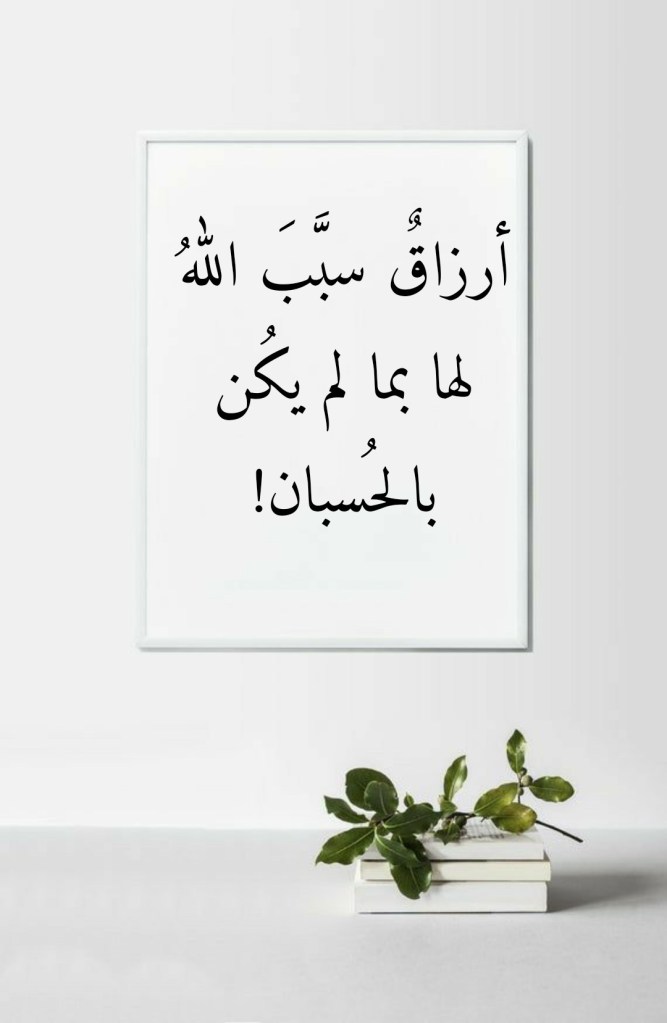 أرزاقٌ سبَّبَ اللهُ
لها بما لم يكُن
بالحُسبان!